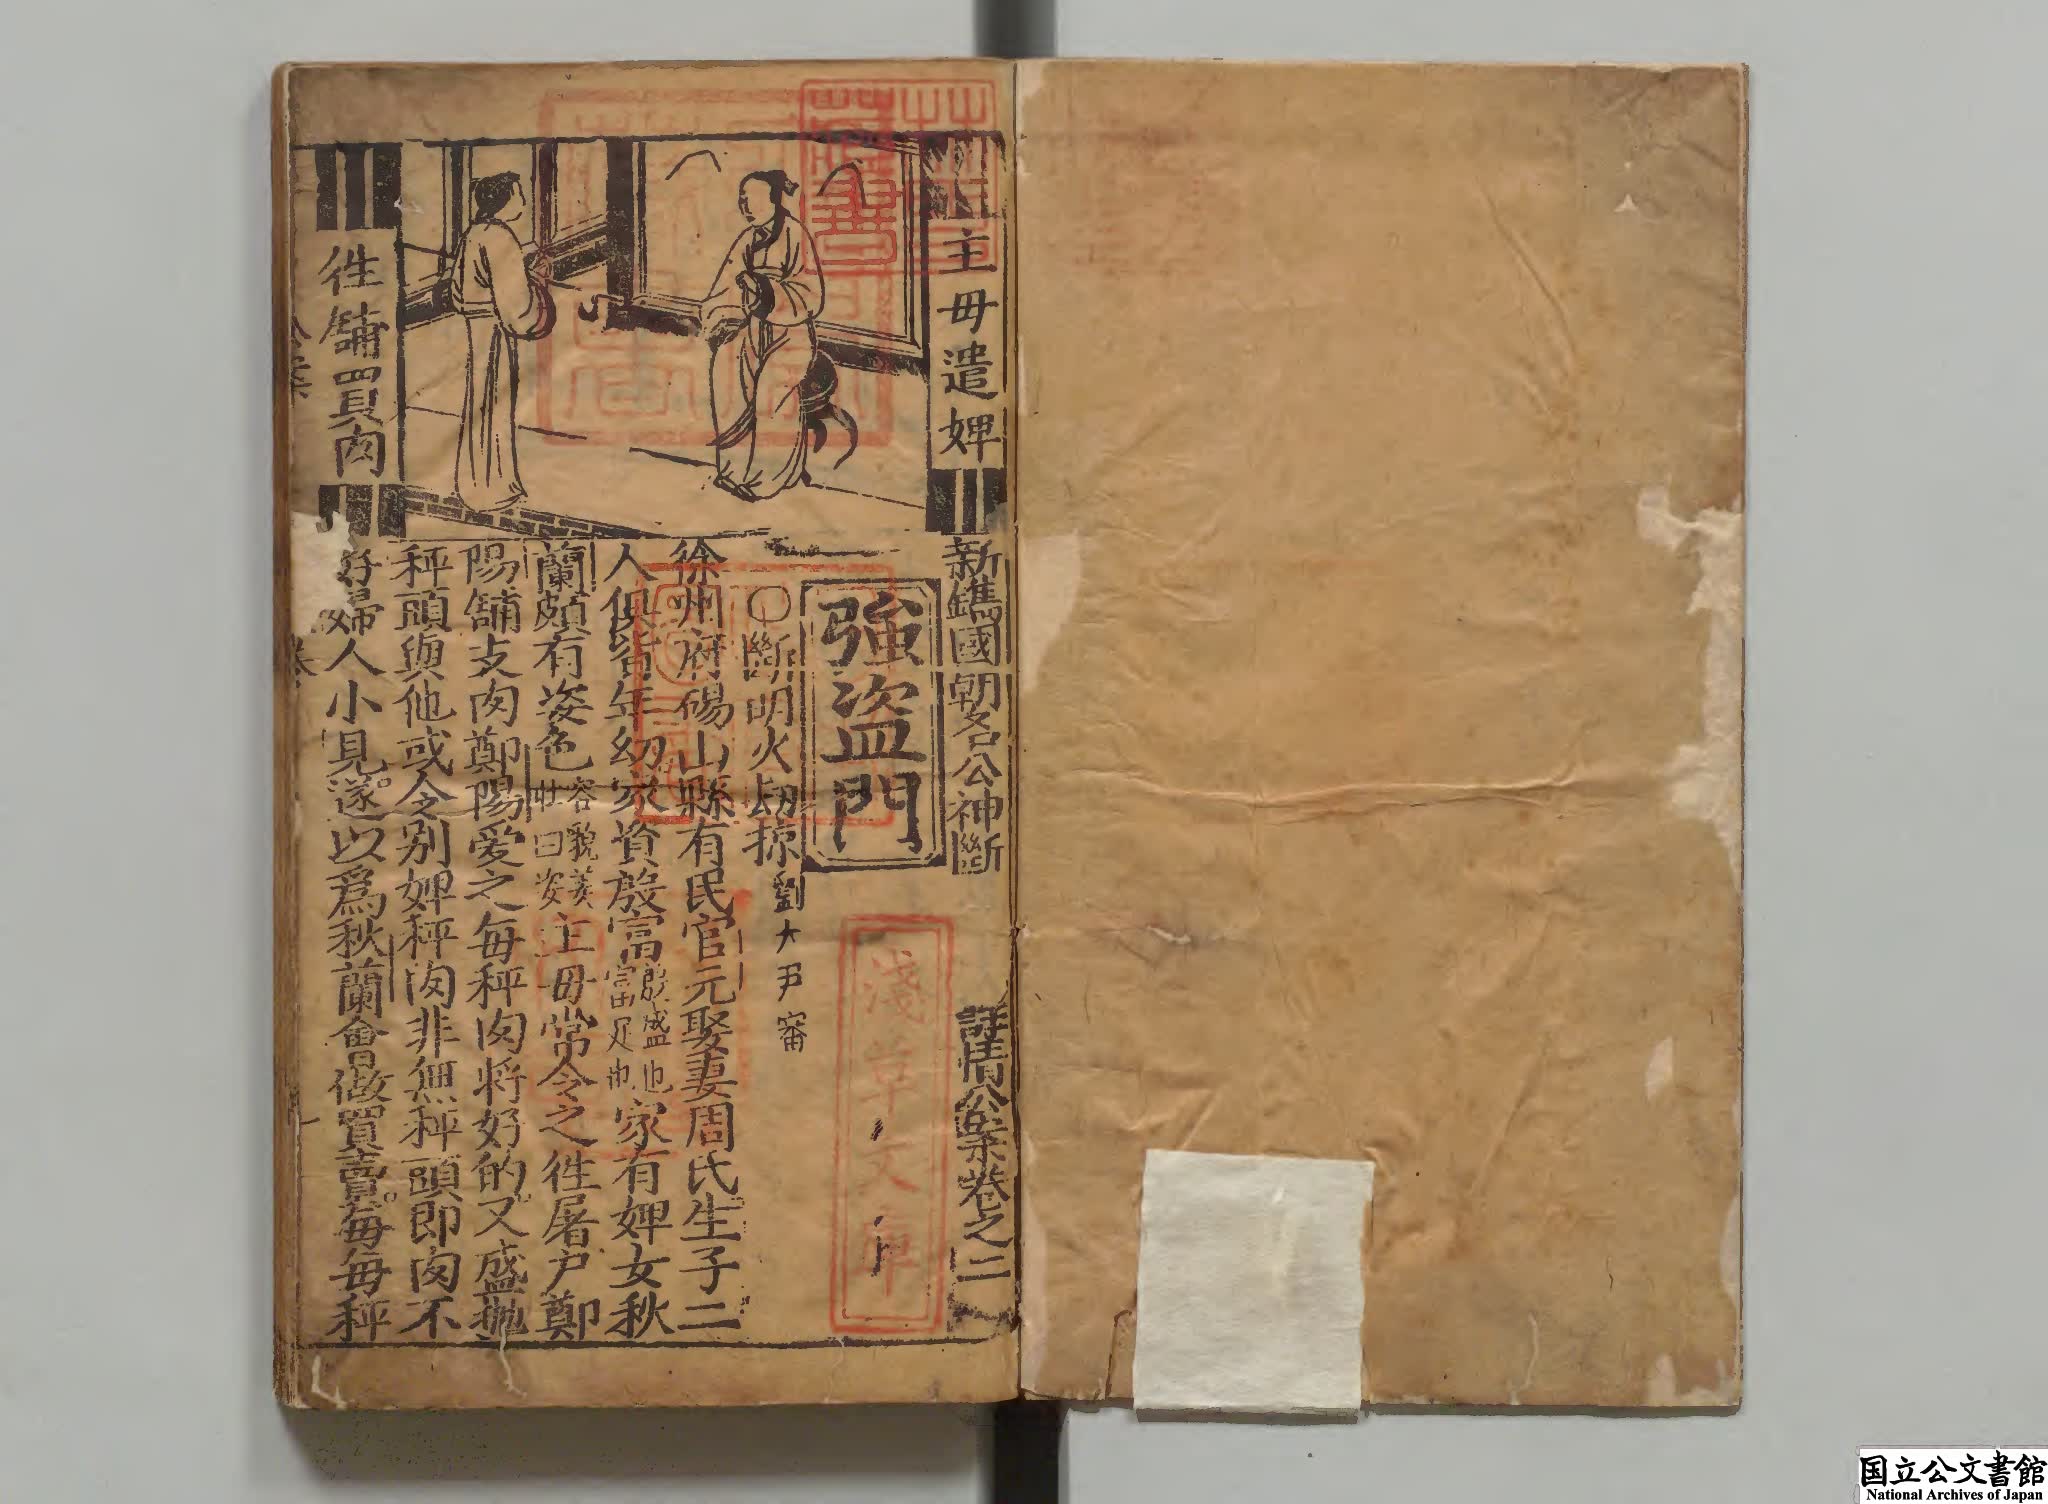 主母遣婢
往舖買肉
新鐫國朝名公神斷
詳情公案卷之二
強盜門
○斷明火劫掠 劉大尹審
徐州府碭山縣有民官元娶妻周氏生子二
人俱皆年幼家資殷富殷盛也富足也家有婢女秋
蘭頗有姿色容貌美壯曰姿主母常令之往屠户鄭
陽舖支肉鄭陽愛之每秤肉將好的又盛拋
秤頭與他或令別婢秤肉非無秤頭即肉不
好婦人小見遂以爲秋蘭會做買賣每每秤
淺草文庫
国立公文書館
National Archives of Japan